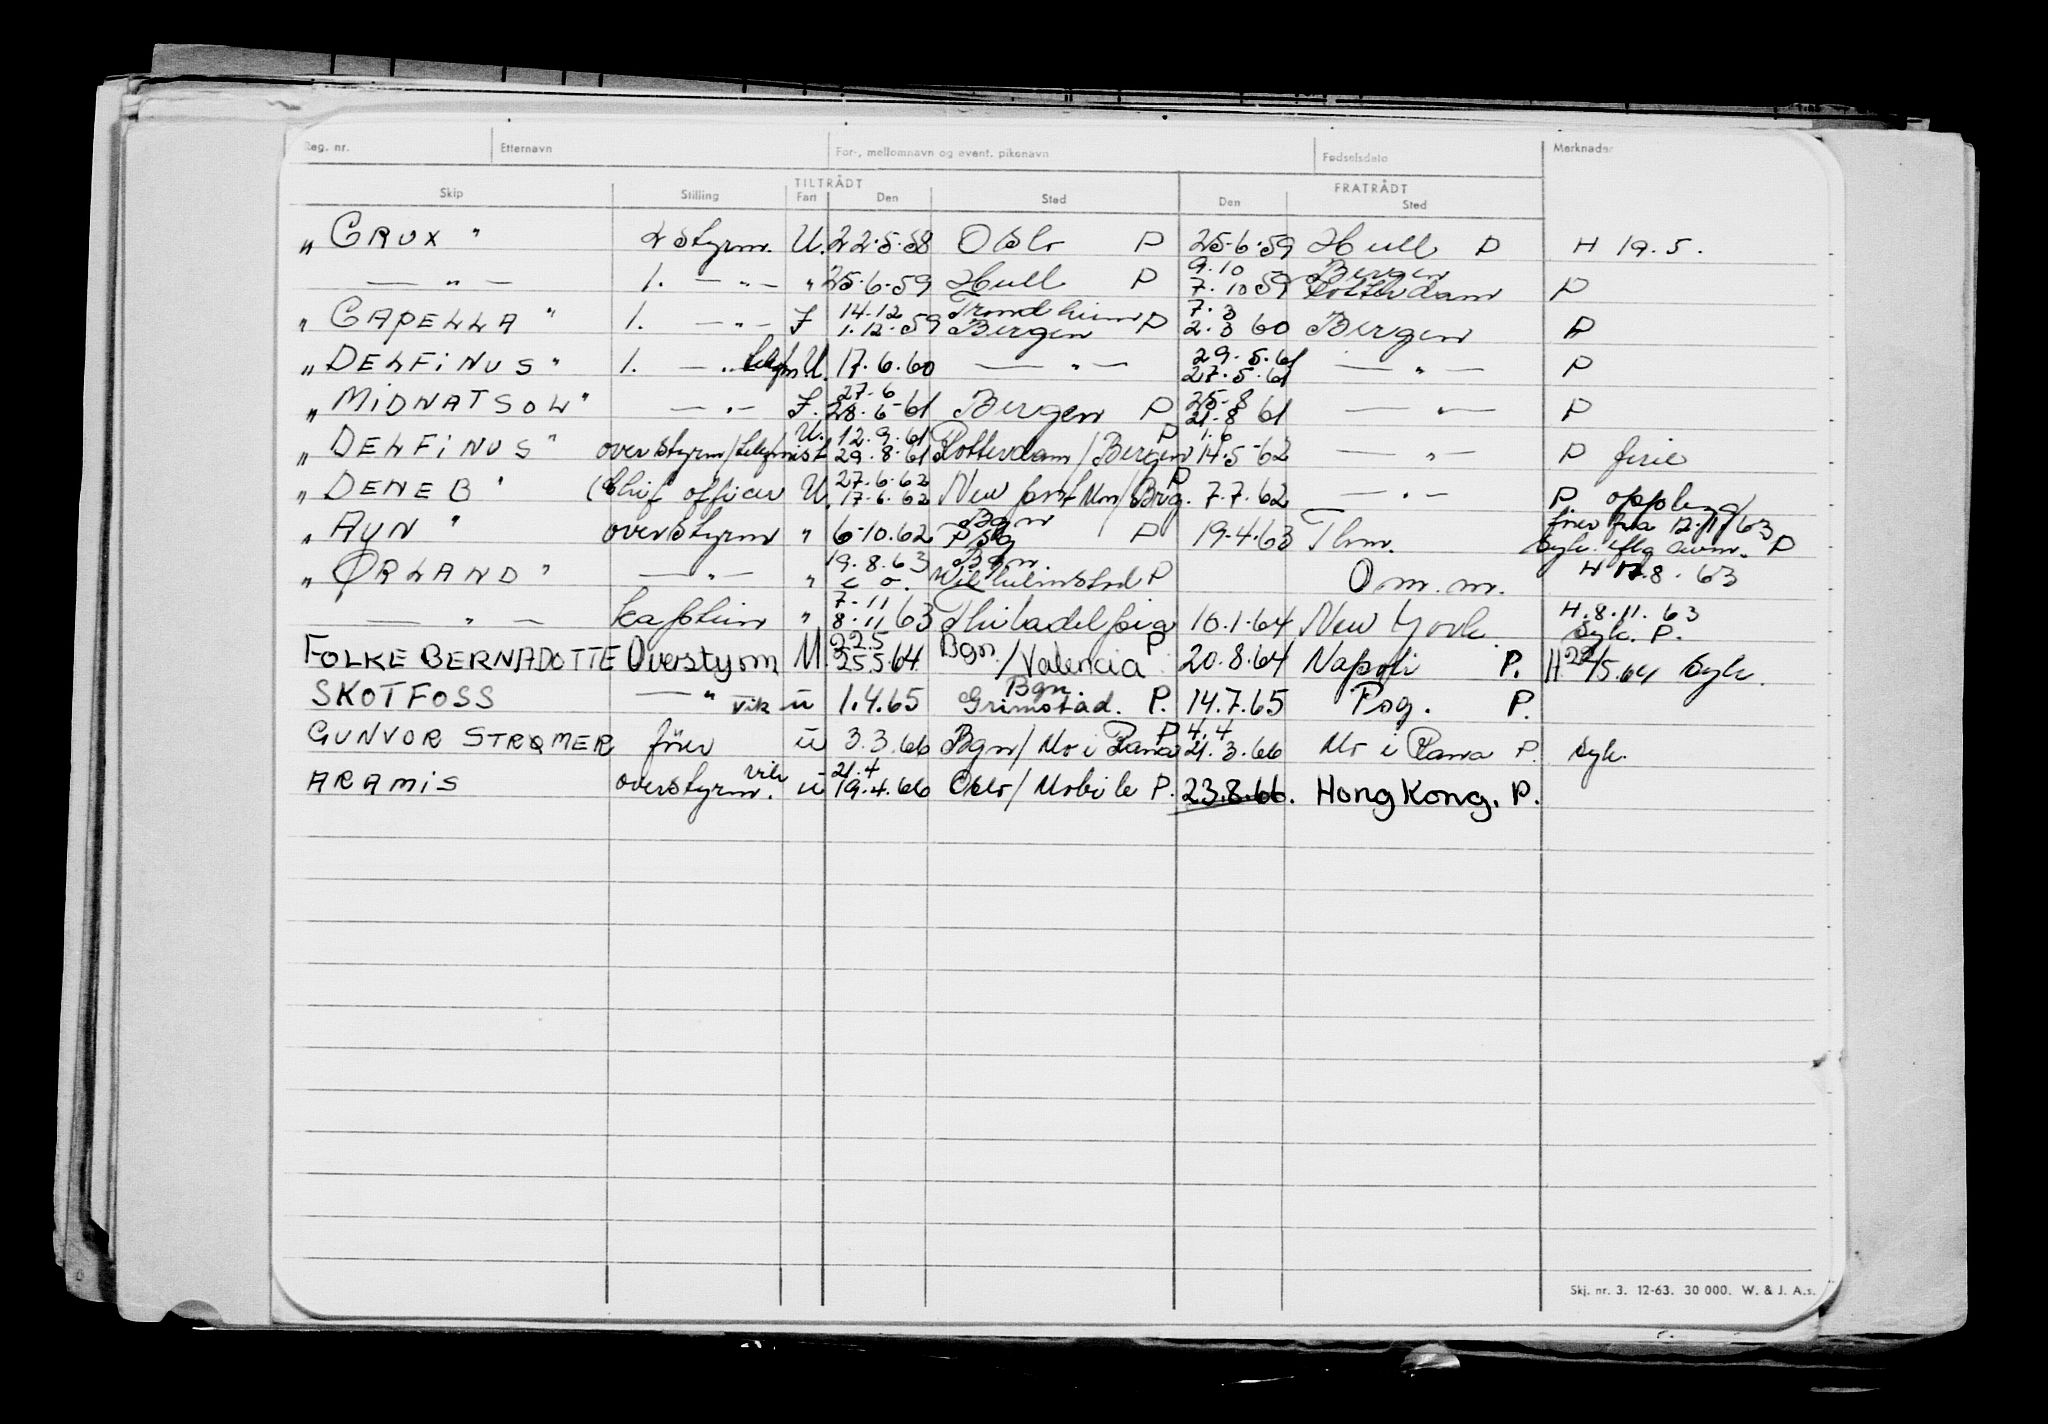 Reg. nr. Etternavn For-, mellomnavn og event. pikenavn Fødselsdato Merknader
TILTRÅDT FRATRÅDT
Skip Stilling Fart Den Sted Den Sted
„ CRUX " 2 styrm. U. 22.5.58 Oslo P 25.6.59 Hull P H 19.5.
— " — 1. — " — " 25.6.59 Hull P 9.10 7.10 59 Bergen Rotterdam P
„ CAPELLA " 1. — " — I 14.12 1.12.59 Trondheim Bergen P 7.3 2.3 60 Bergen P
„ DELFINUS " 1. — " — U. 17.6.60 — " — 29.5.61 27.5.61 — " — P
„ MIDNATSOL " — " — I. 27.6 28.6-61 Bergen P 25-8 21.8 61 — " — P
„ DELFINUS " overstyrm/telegrafist U. 12.9.61 29.8.61 Rotterdam/Bergen P 1.6 14.5-62 — " — P ferie
„ DENEB " (Chief officer U. 27.6.62 17.6.62 New port /Brg. P 7.7.62 — " — P.
„ AYN " overstyrm " 6-10.62 Bgn Psg P 19.4.63 Thm. fører fra 12.11 63
Syk. P
„ ØRLAND " — " — " 19.8.63 c o. Bgn. Wilhelmstad P O m. m. H 17.8.63
— " — kaptein " 7-11 8-11 63 Philadelphia 10.1.64 New York H.8.11.63
Syk. P.
FOLKE BERNADOTTE Overstyrm U 22.5 25.5.64 Bgn/Valencia P 20.8.64 Napoli P. H 22/5.64 Syk.
SKOTFOSS — " — vik u 1.4.65 Bgn. Grimstad. P. 14.7.65 Psg. P.
GUNVOR STRØMER fører u 3.3.66 Bgn/Mo i Rana P 4.4 21.3.66 Mo i Rana P. Syk.
ARAMIS overstyrm. vik u 21.4 19.4.66 Oslo/Mobile P. 23.8.66. Hong Kong. P.
Skj. nr. 3. 12-63. 30 000. W. & J. A.s.